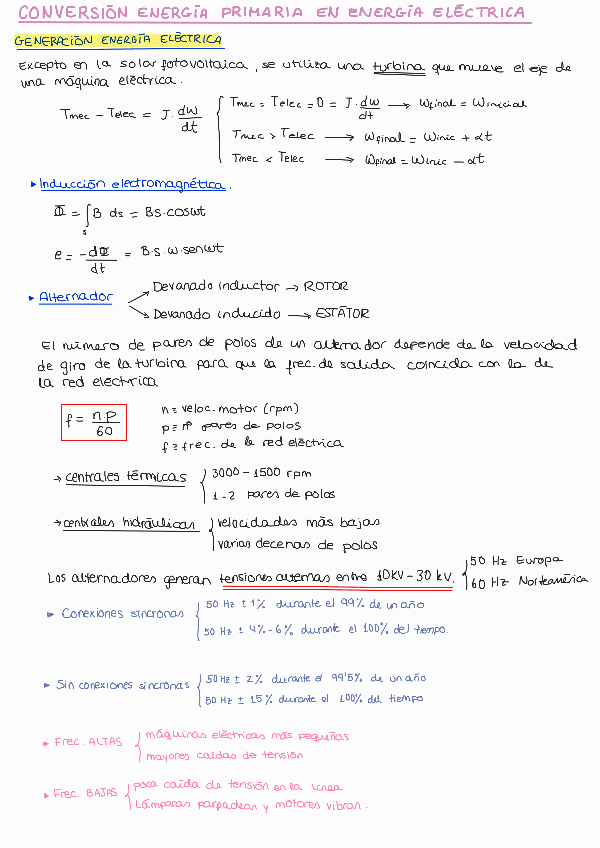 CONVERSIÓN ENERGÍA PRIMARIA EN ENERGÍA ELÉCTRICA
GENERACIÓN ENERGÍA ELÉCTRICA
Excepto en la solar fotovoltaica, se utiliza una turbina que mueve el eje de
una máquina eléctrica.
Tmec - Telec = J. dw/dt
Tmec = Telec = 0 = J. dw/dt → Wfinal = Winicial
Tmec > Telec → Wfinal = Winic + αt
Tmec < Telec → Wfinal = Winic - αt
▸ Inducción electromagnética.
Φ = ∫s B ds = BS.coswt
e = -dΦ/dt = B.S.w.senwt
▸ Alternador
Devanado inductor → ROTOR
Devanado inducido → ESTÁTOR
El número de pares de polos de un alternador depende de la velocidad
de giro de la turbina para que la frec. de salida coincida con la de
la red electrica
f = n.p/60
n = veloc. motor (rpm)
p = nº pares de polos
f = frec. de la red eléctrica
→ centrales térmicas
3000 - 1500 rpm
1 - 2 pares de polos
→ centrales hidráulicas
velocidades más bajas
varias decenas de polos
Los alternadores generan tensiones alternas entre 10kV - 30 kV.
50 Hz Europa
60 Hz Norteamérica
▸ Conexiones síncronas
50 Hz ± 1% durante el 99% de un año
50 Hz ± 4% - 6% durante el 100% del tiempo.
▸ Sin conexiones síncronas
50 Hz ± 2% durante el 99'5% de un año
50 Hz ± 15% durante el 100% del tiempo
▸ Frec. ALTAS
máquinas eléctricas más pequeñas
mayores caídas de tensión
▸ Frec. BAJAS
poca caída de tensión en la línea
Lámparas parpadean y motores vibran.